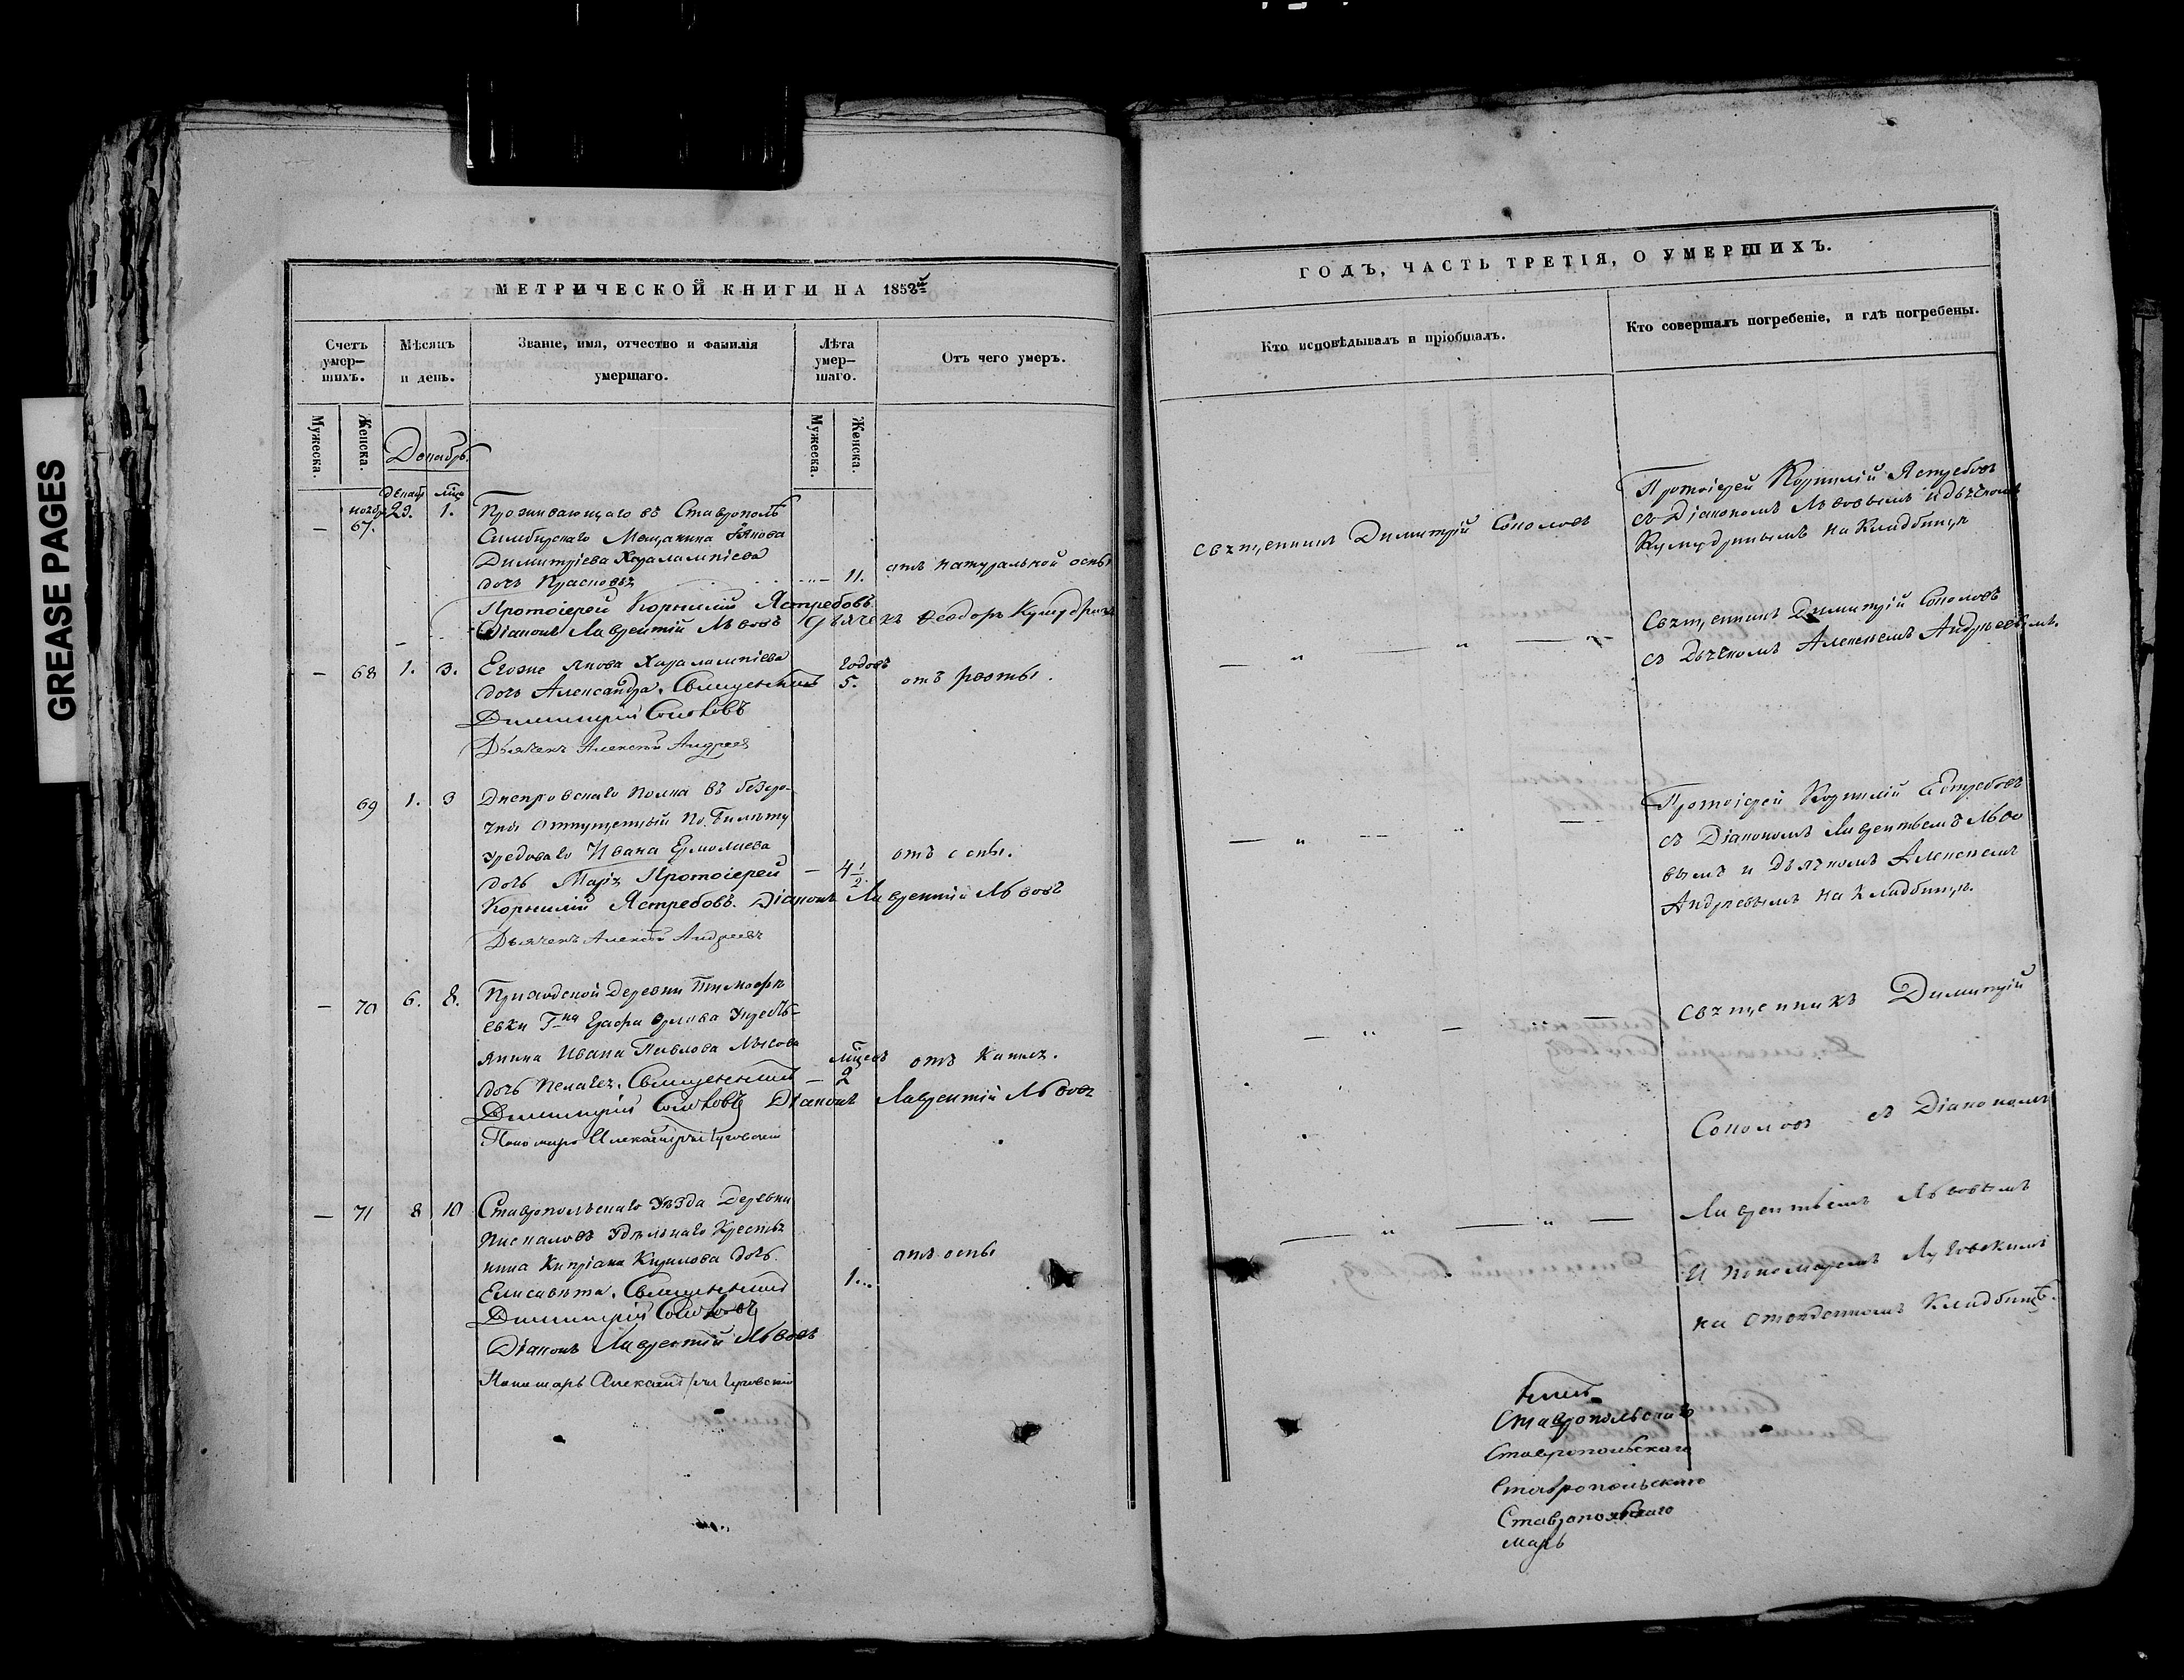 GREASE PAGES
МЕТРИЧЕСКОЙ КНИГИ НА 1858й
Счетъ умер-шихъ.
Мѣсяцъ и день.
Званіе, имя, отчество и фамилія умершаго.
Лѣта умер-шаго.
Отъ чего умеръ.
Мужеска.
Женска.
Мужеска.
Женска.
Декабрь
67. 29. 1. Проживающаго въ Ставрополѣ
Симбирскаго Мещанина Якова
Димитріева Харалампіева
дочь 11. отъ натуральной оспы
Протоіерей Корнилій Ястребовъ
Діаконъ Лаврентій Львовъ Дьячекъ Ѳеодоръ
— 68 1. 3. Егоже Якова Харалампіева годовъ
дочь Александра. Священникъ 5. отъ рвоты.
Димитрій Соколовъ
Дьячекъ Алексѣй Андреевъ
69 1. 3 Днепровскаго полка въ безсро-
чной отпущенный по Билету
рядоваго Ивана Ермолаева
дочь Марія Протоіерей — 4 1/2. отъ оспы.
Корнилій Ястребовъ. Діаконъ Лаврентій Львовъ
Дьячекъ Алексѣй Андреевъ
— 70 6. 8. Приходской Деревни Тимофѣ
евки Г-на Графа Орлова
Ивана Павлова мцевъ
дочь Пелагея. Священникъ — 2 отъ кашля.
Димитрій Соколовъ Діаконъ Лаврентій Львовъ
Пономарь Александръ Луговскій
— 71 8 10 Ставропольскаго Уѣзда Деревни
Пискаловъ Удѣльнаго Крестья
нина Кипріана Кирилова дочь
Елисавета. Священникъ 1... отъ оспы
Димитрій Соколовъ
Діаконъ Лаврентій Львовъ
Пономарь Александръ Луговскій
ГОДЪ, ЧАСТЬ ТРЕТІЯ, О УМЕРШИХЪ.
Кто исповѣдывалъ и пріобщалъ.
Кто совершалъ погребеніе, и гдѣ погребены.
священникъ Димитрій Соколовъ
Протоіерей Корнилій Ястребовъ
съ Діакономъ Львовымъ и дьячкомъ
на Кладбищѣ
— „ — „ — Священникъ Димитрій Соколовъ
съ Дьячкомъ Алексѣемъ Андреевымъ.
— „ — „ — Протоіерей Корнилій Ястребовъ
съ Діакономъ Лаврентьемъ Льво
вымъ и Дьячкомъ Алексѣемъ
Андреевымъ на кладбищѣ.
— „ — — священникъ Димитрій
Соколовъ съ Діакономъ
— „ — „ — Лаврентьемъ Львовымъ
и пономаремъ Луговскимъ
на отведенномъ Кладбищѣ.
Ставропольскаго
Ставропольскаго
Ставропольскаго
Ставропольскаго
марь